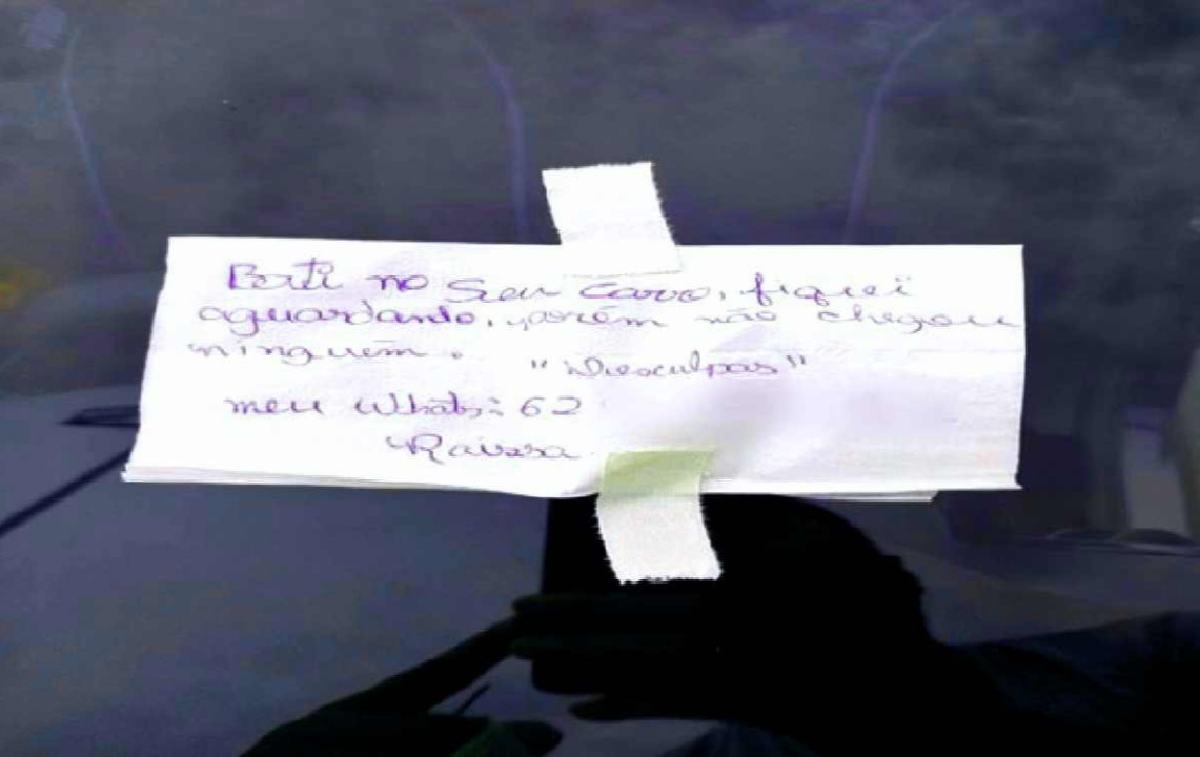 Bati no seu carro, fiquei
aguardando, porém não chegou
ninguém. "Desculpas"
meu Whats: 62
Raissa